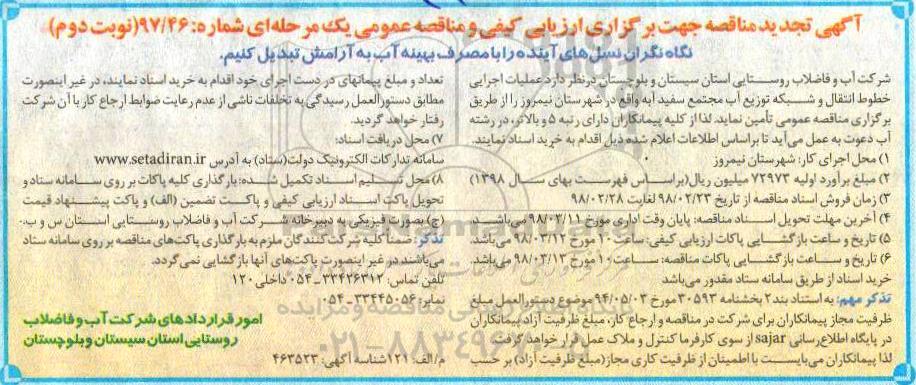 آگهی تجدید مناقصه جهت برگزاری ارزیابی کیفی و مناقصه عمومی یک مرحله‌ای شماره: ۹۷/۴۶ (نوبت دوم)
نگاه نگران نسل‌های آینده را با مصرف بهینه آب به آرامش تبدیل کنیم.
شرکت آب و فاضلاب روستایی استان سیستان و بلوچستان در نظر دارد عملیات اجرایی
خطوط انتقال و شبکه توزیع آب مجتمع سفید آبه واقع در شهرستان نیمروز را از طریق
برگزاری مناقصه عمومی تأمین نماید. لذا از کلیه پیمانکاران دارای رتبه ۵ و بالاتر، در رشته
آب دعوت به عمل می‌آید تا براساس اطلاعات اعلام شده ذیل اقدام به خرید اسناد نمایند.
۱) محل اجرای کار: شهرستان نیمروز
۲) مبلغ برآورد اولیه ۷۲۹۷۳ میلیون ریال (براساس فهرست بهای سال ۱۳۹۸)
۳) زمان فروش اسناد مناقصه از تاریخ ۹۸/۰۲/۲۳ لغایت ۹۸/۰۲/۲۸
۴) آخرین مهلت تحویل اسناد مناقصه: پایان وقت اداری مورخ ۹۸/۰۳/۱۱ می‌باشد.
۵) تاریخ و ساعت بازگشایی پاکات ارزیابی کیفی: ساعت ۱۰ مورخ ۹۸/۰۳/۱۲ می‌باشد.
۶) تاریخ و ساعت بازگشایی پاکات مناقصه: ساعت ۱۰ مورخ ۹۸/۰۳/۱۳ می‌باشد.
خرید اسناد از طریق سامانه ستاد مقدور می‌باشد
تذکر مهم: به استناد بند ۲ بخشنامه ۳۰۵۹۳ مورخ ۹۴/۰۵/۰۳ موضوع دستورالعمل مبلغ
ظرفیت مجاز پیمانکاران برای شرکت در مناقصه و ارجاع کار، مبلغ ظرفیت آزاد پیمانکاران
در پایگاه اطلاع رسانی sajar از سوی کارفرما کنترل و ملاک عمل قرار خواهد گرفت
لذا پیمانکاران می‌بایست با اطمینان از ظرفیت کاری مجاز (مبلغ ظرفیت آزاد) بر حسب
تعداد و مبلغ پیمانهای در دست اجرای خود اقدام به خرید اسناد نمایند، در غیر اینصورت
مطابق دستورالعمل رسیدگی به تخلفات ناشی از عدم رعایت ضوابط ارجاع کار با آن شرکت
رفتار خواهد گردید.
۷) محل دریافت اسناد:
سامانه تدارکات الکترونیک دولت (ستاد) به آدرس www.setadiran.ir
۸) محل تسلیم اسناد تکمیل شده: بارگذاری کلیه پاکات بر روی سامانه ستاد و
تحویل پاکت اسناد ارزیابی کیفی و پاکت تضمین (الف) و پاکت پیشنهاد قیمت
(ج) بصورت فیزیکی به دبیرخانه شرکت آب و فاضلاب روستایی استان س و ب.
تذکر: ضمناً کلیه شرکت کنندگان ملزم به بارگذاری پاکت‌های مناقصه بر روی سامانه ستاد
می‌باشند در غیر اینصورت پاکت‌های آنها بازگشایی نمی‌گردد.
تلفن تماس: ۳۳۴۳۶۳۱۲-۰۵۴ داخلی ۱۲۰
نمابر: ۳۳۴۴۵۰۵۶-۰۵۴
امور قراردادهای شرکت آب و فاضلاب
روستایی استان سیستان و بلوچستان
م/الف: ۱۲۱ شناسه آگهی: ۴۶۳۵۲۳